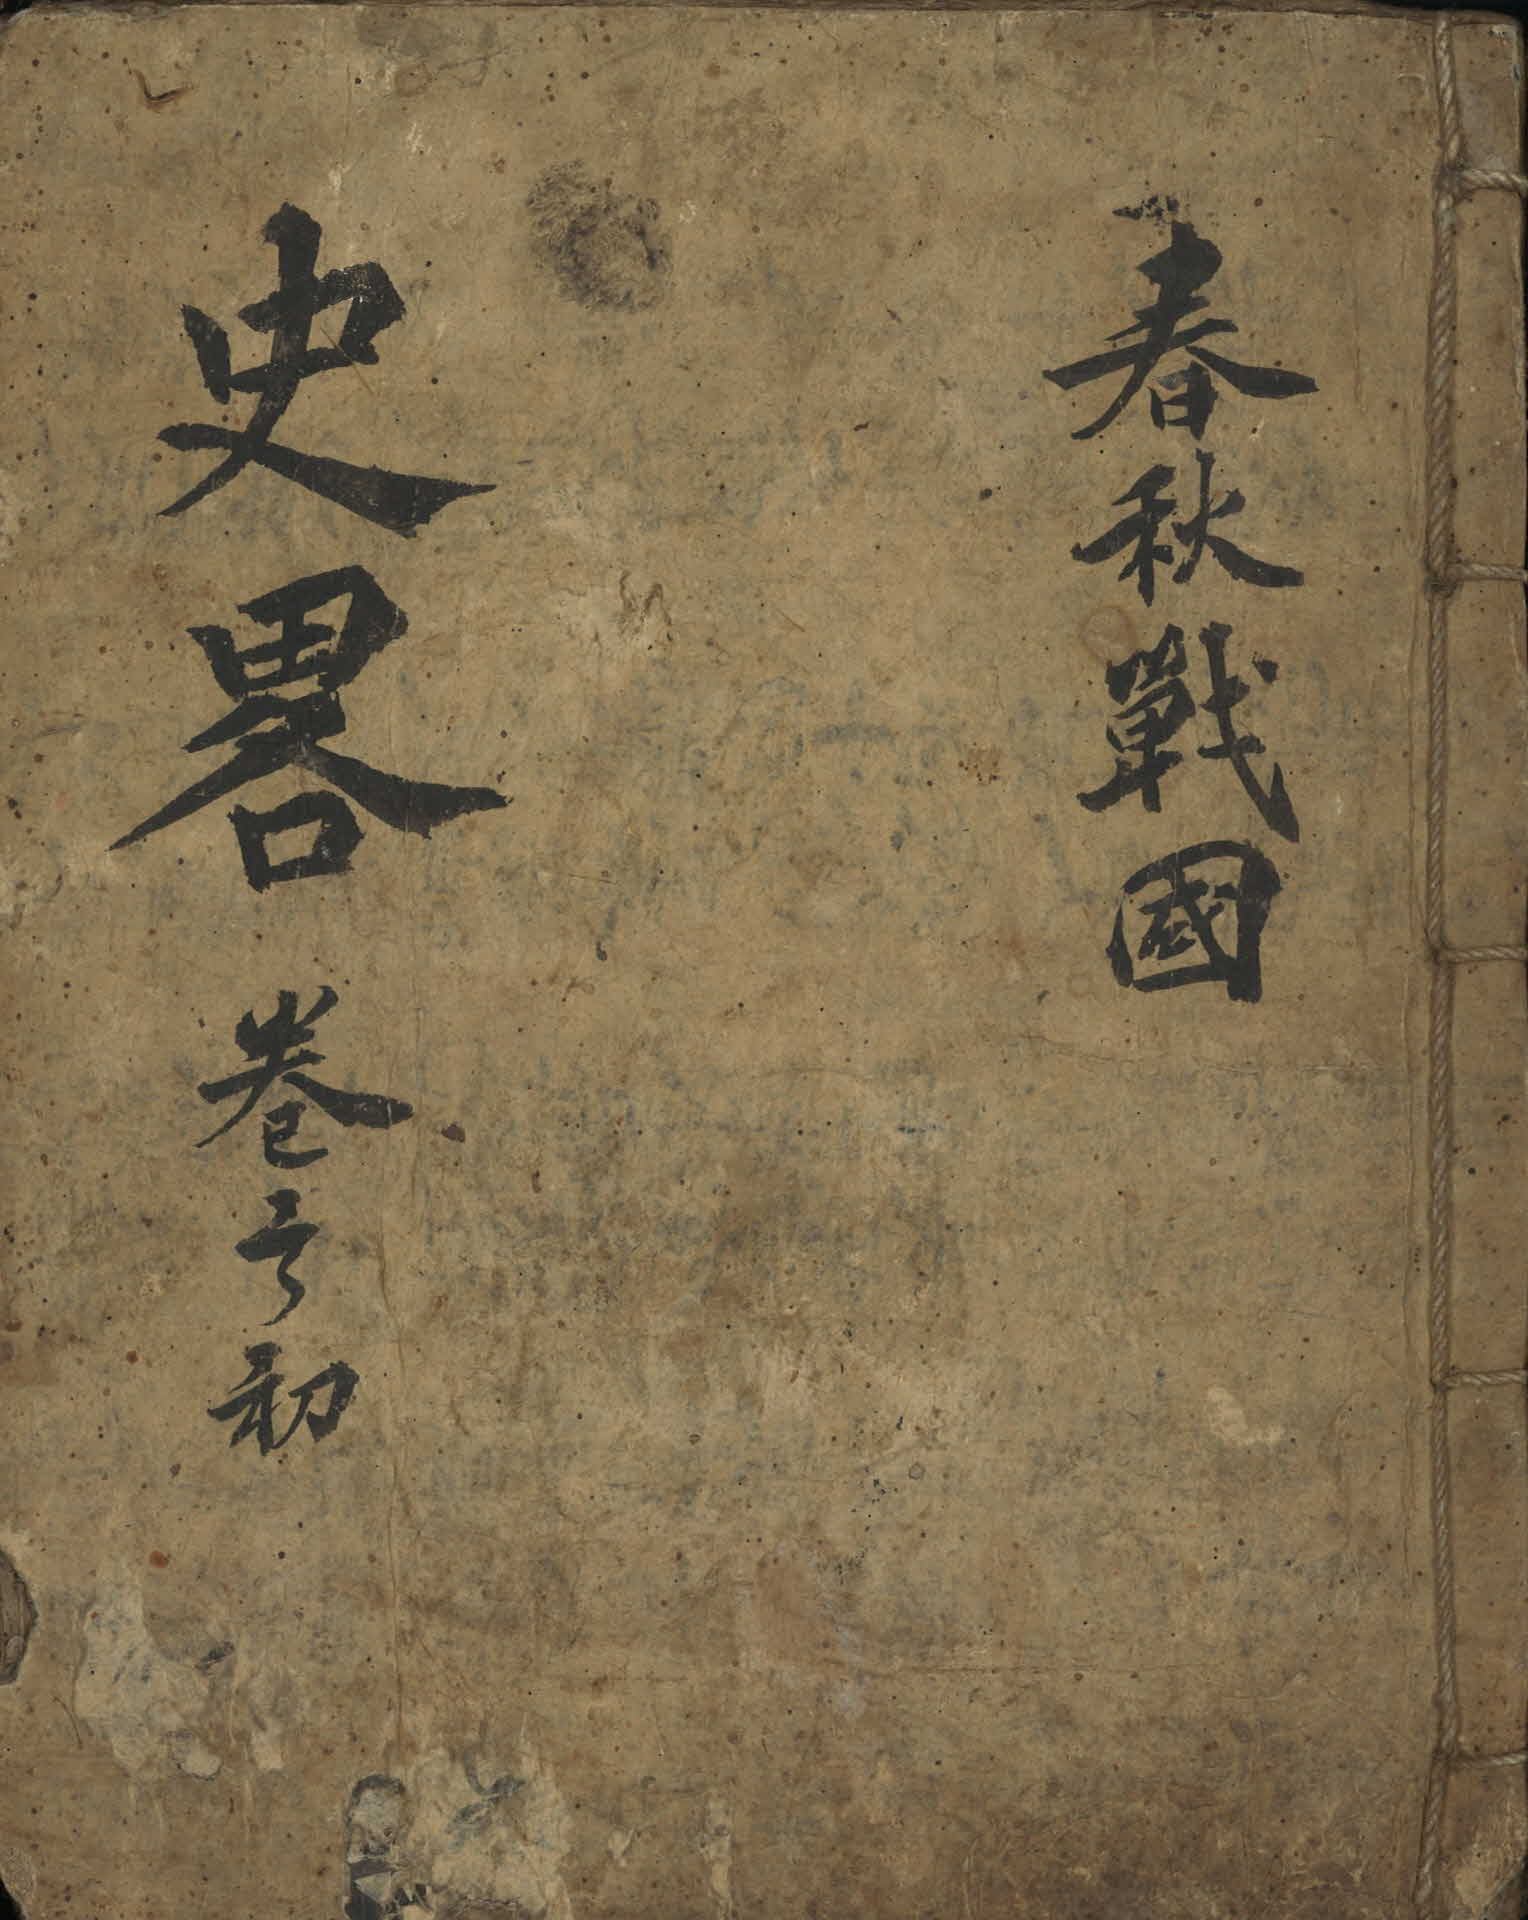 春秋戰國
史畧 卷之初